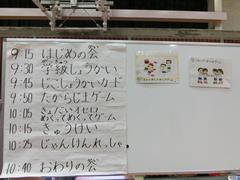 9:15 はじめの会
9:30 学級しょうかい
9:45 じこしょうかいカード
9:50 たからじまゲーム
10:05 きょだいオセロ
めくってめくってゲーム
10:15 きゅうけい
10:25 じゃんけんれっしゃ
10:40 おわりの会